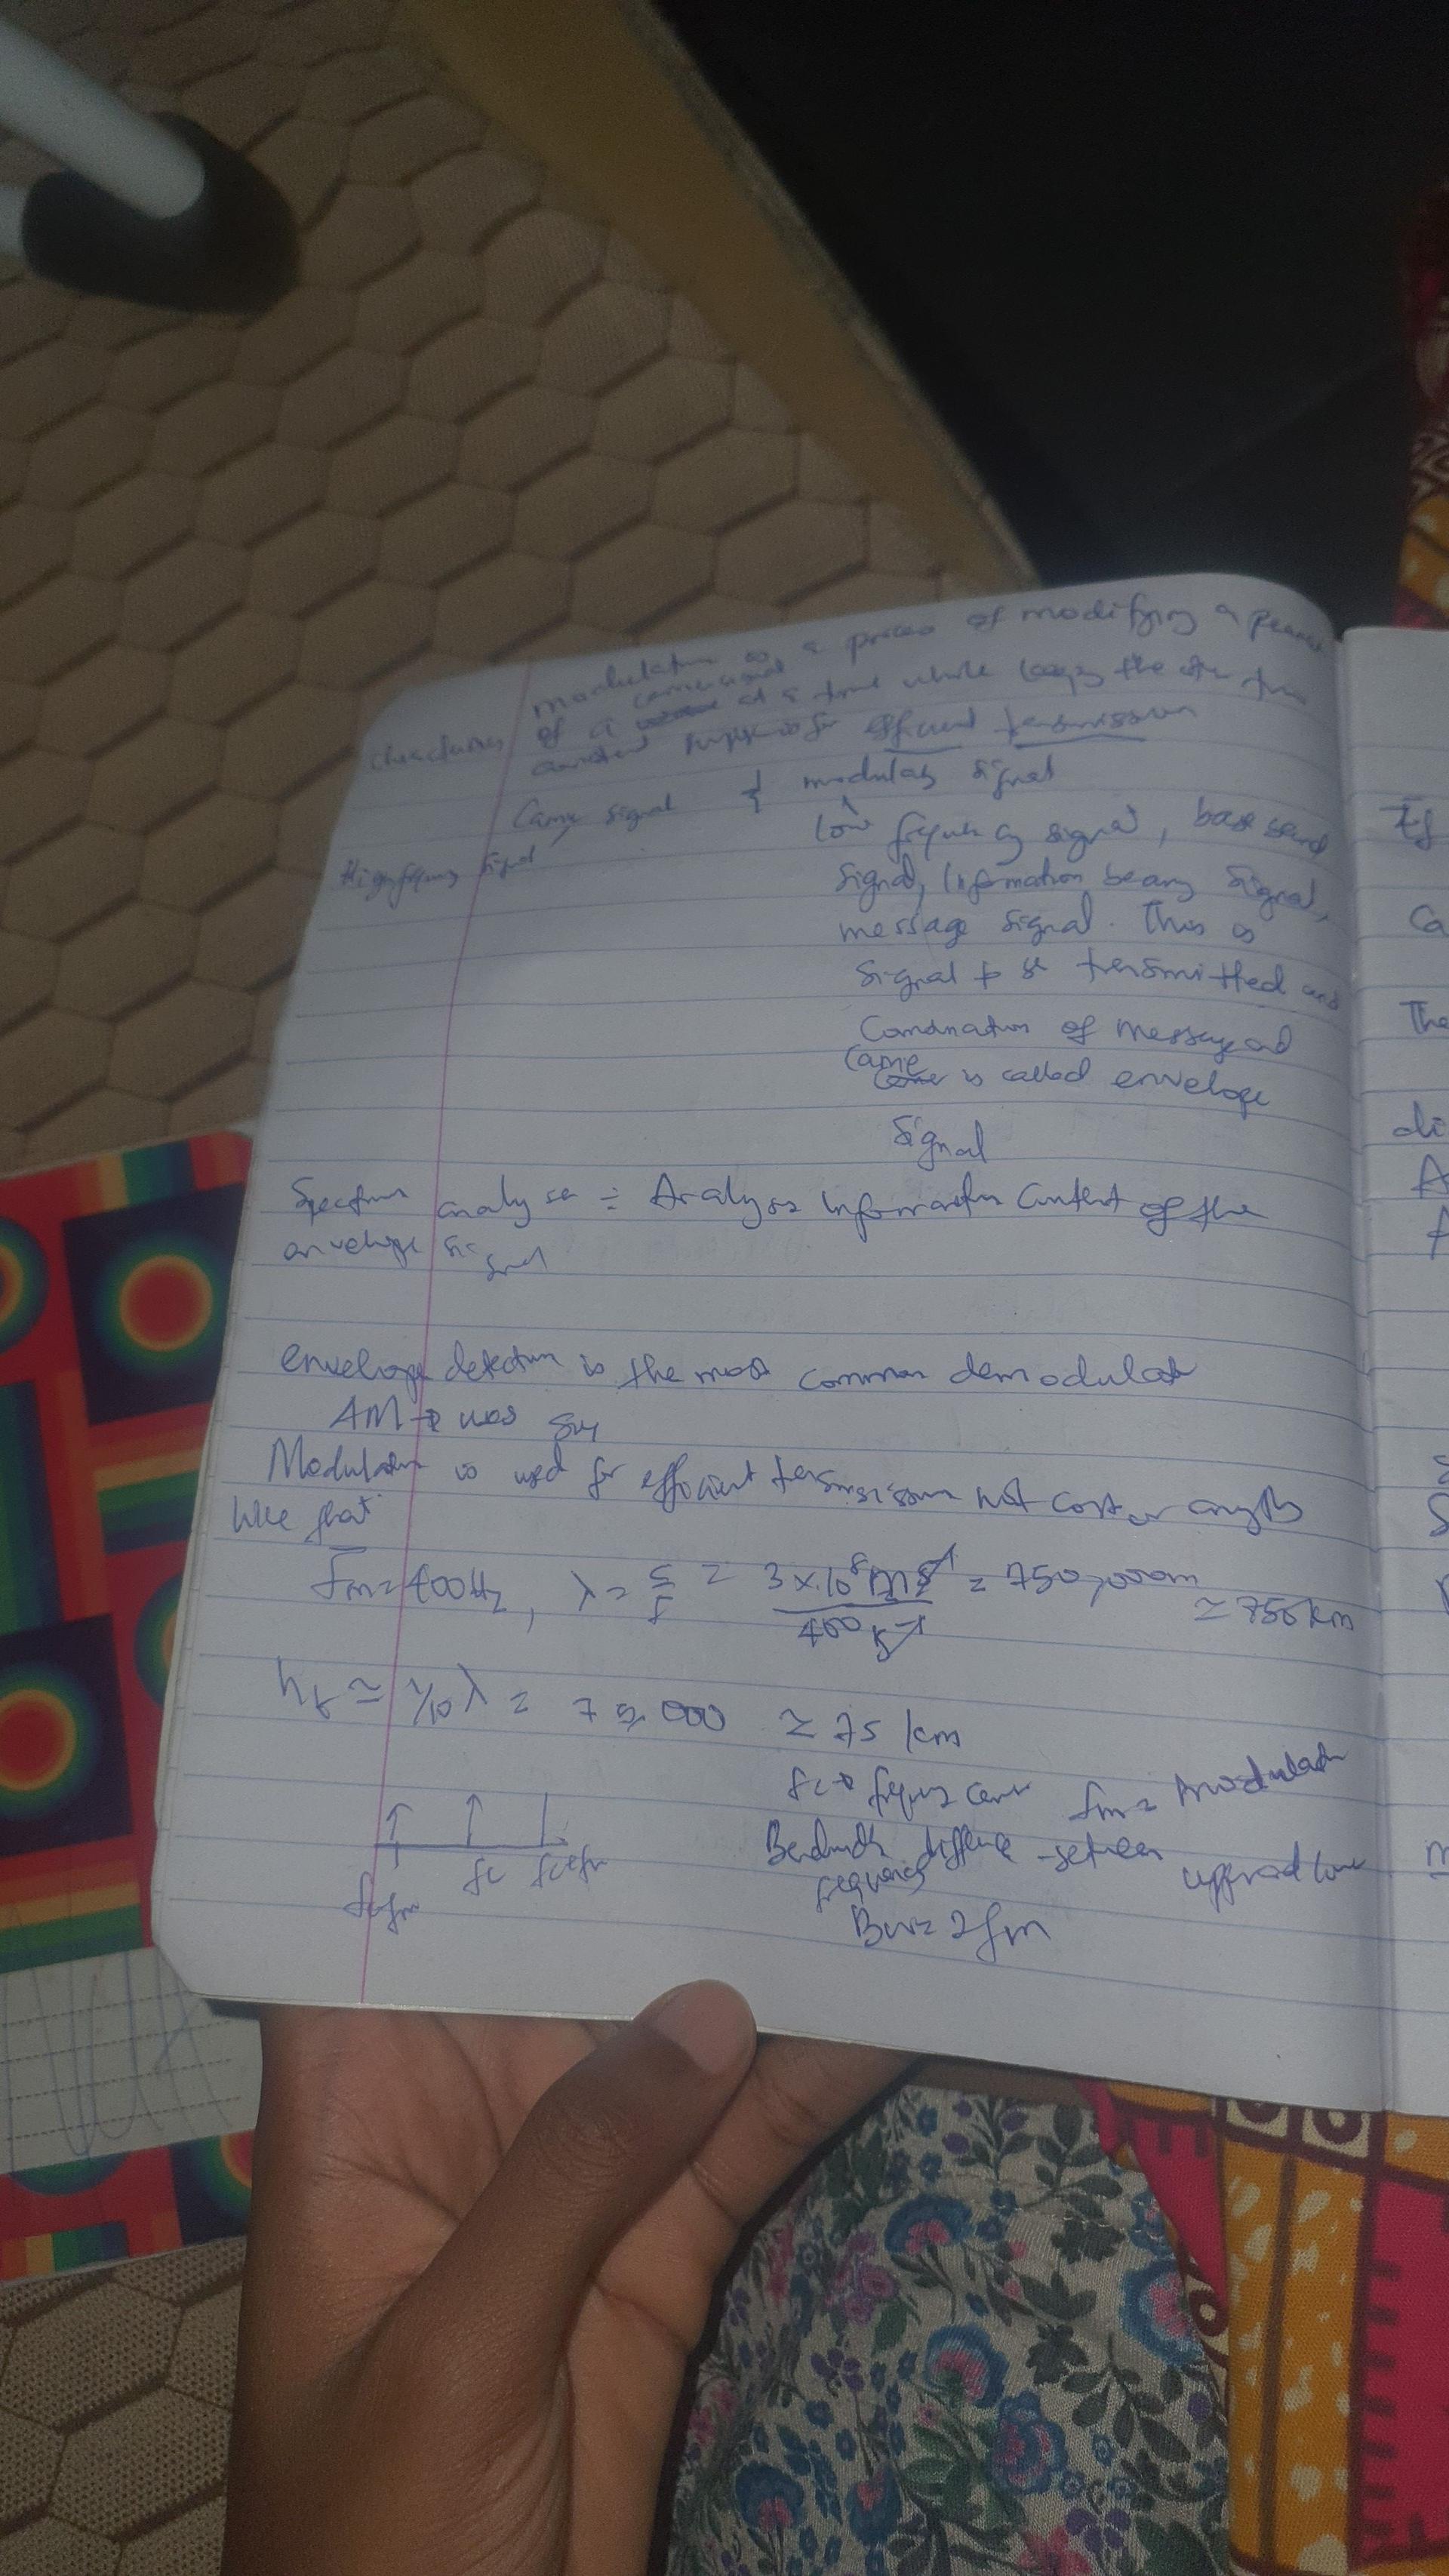 modulation is a process of modifying a
characteristics of a carrier signal at a time while keeping the other two
constant purpose is for efficient transmission
Carrier signal & modulating signal
High frequency signal
low frequency signal, base band
Signal, Information bearing Signal,
message signal. This is
Signal to be transmitted and
Combination of message and
Carrier is called envelope
Signal
Spectrum analyser = Analyses Information Content of the
envelope signal
envelope detection is the most common demodulator
AM → was
Modulation is used for efficient transmission not cost or anything
like that
fm = 400Hz, λ = c/f = 3×10⁸ms⁻¹/400s⁻¹ = 750,000m
≃ 750km
ht ≃ 1/10 λ = 75,000 ≃ 75 km
fc → frequency carrier fm = modulation
Bandwidth difference between upper and lower
frequencies
fc-fm fc fc+fm
Bw = 2fm
If
Ca
The
di
A